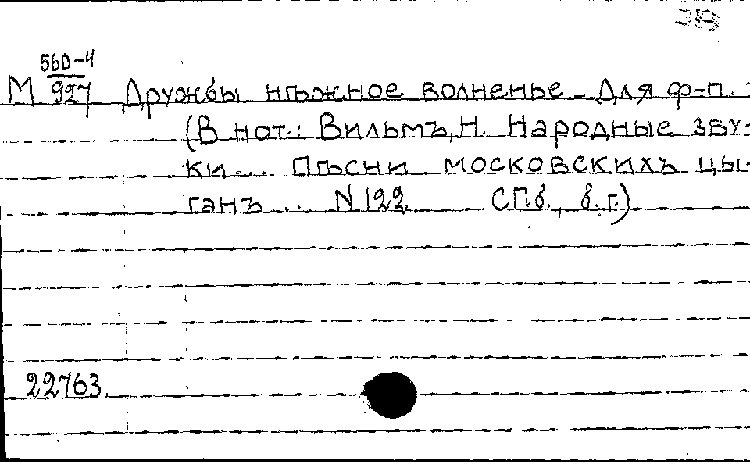 560-4
М 927 Дружбы нѣжное волненье. Для ф-п.
(В нот.: Вильмъ, Н. Народные зву-
ки... Пѣсни московскихъ цы-
ганъ... N 122. СПб., б.г.)
22763.